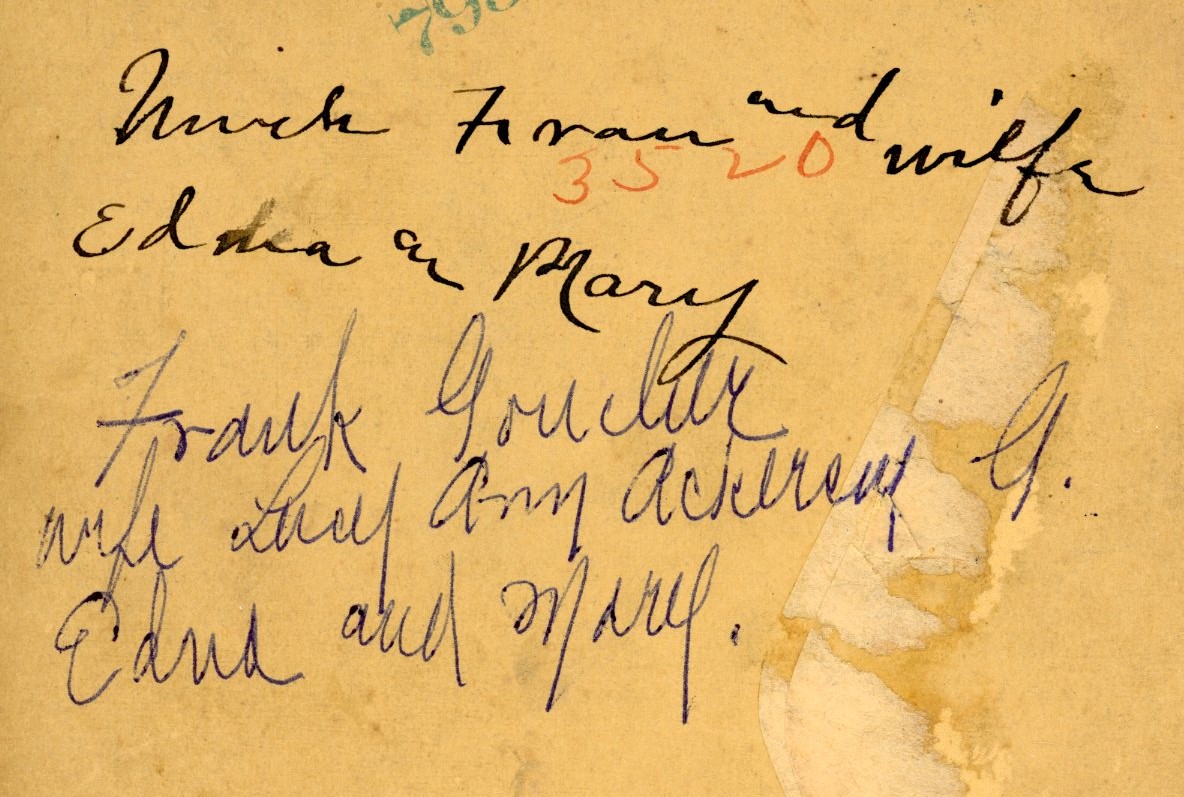 and
Fran wilfe
3520
Edna an Mary
Frank Goucher
wife Lucy Ann Ackersay G.
Edna and Mary.